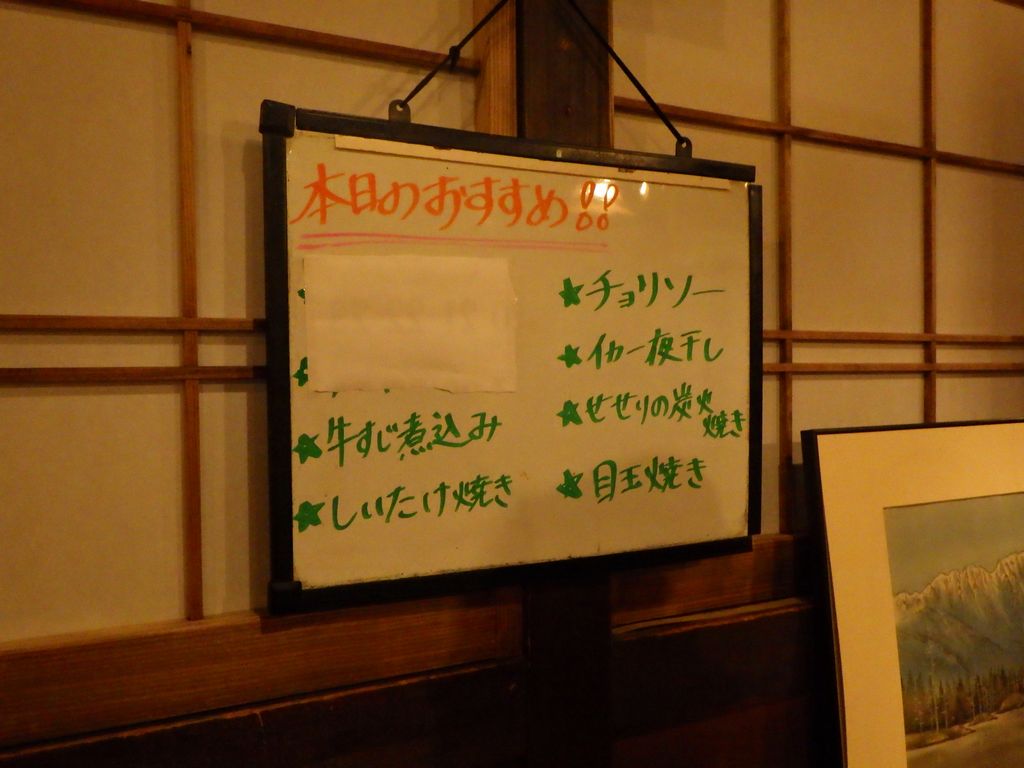 本日のおすすめ!!
★牛すじ煮込み
★しいたけ焼き
★チョリソー
★イカ一夜干し
★せせりの炭火
焼き
★目玉焼き